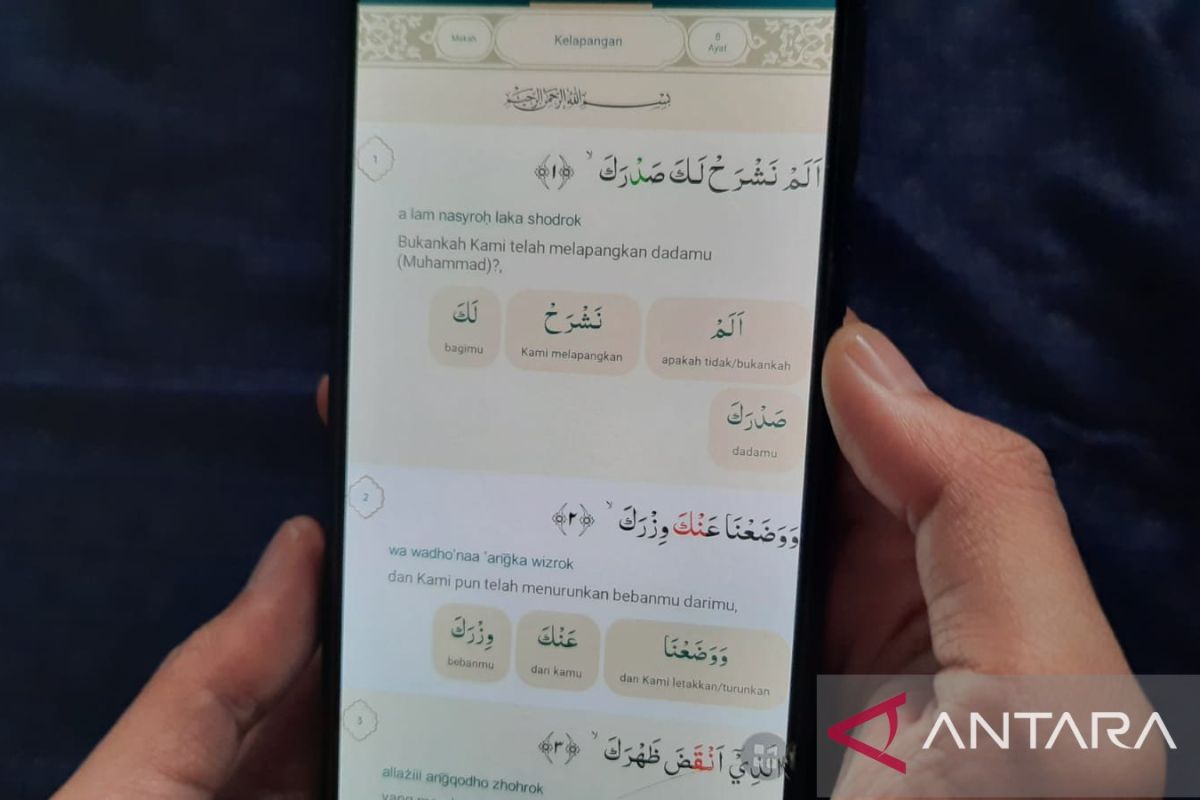 Mekah
Kelapangan
8
Ayat
بِسْمِ اللّٰهِ الرَّحْمٰنِ الرَّحِيْمِ
1
اَلَمْ نَشْرَحْ لَكَ صَدْرَكَۙ ﴿١﴾
a lam nasyroḥ laka shodrok
Bukankah Kami telah melapangkan dadamu
(Muhammad)?,
اَلَمْ نَشْرَحْ لَكَ
apakah tidak/bukankah Kami melapangkan bagimu
صَدْرَكَ
dadamu
2
وَوَضَعْنَا عَنْكَ وِزْرَكَۙ ﴿٢﴾
wa wadho'naa 'ang̈ka wizrok
dan Kami pun telah menurunkan bebanmu darimu,
وَوَضَعْنَا عَنْكَ وِزْرَكَ
dan Kami letakkan/turunkan dari kamu bebanmu
3
الَّذِيْٓ اَنْقَضَ ظَهْرَكَۙ ﴿٣﴾
allażiii ang̈qodho zhohrok
ANTARA